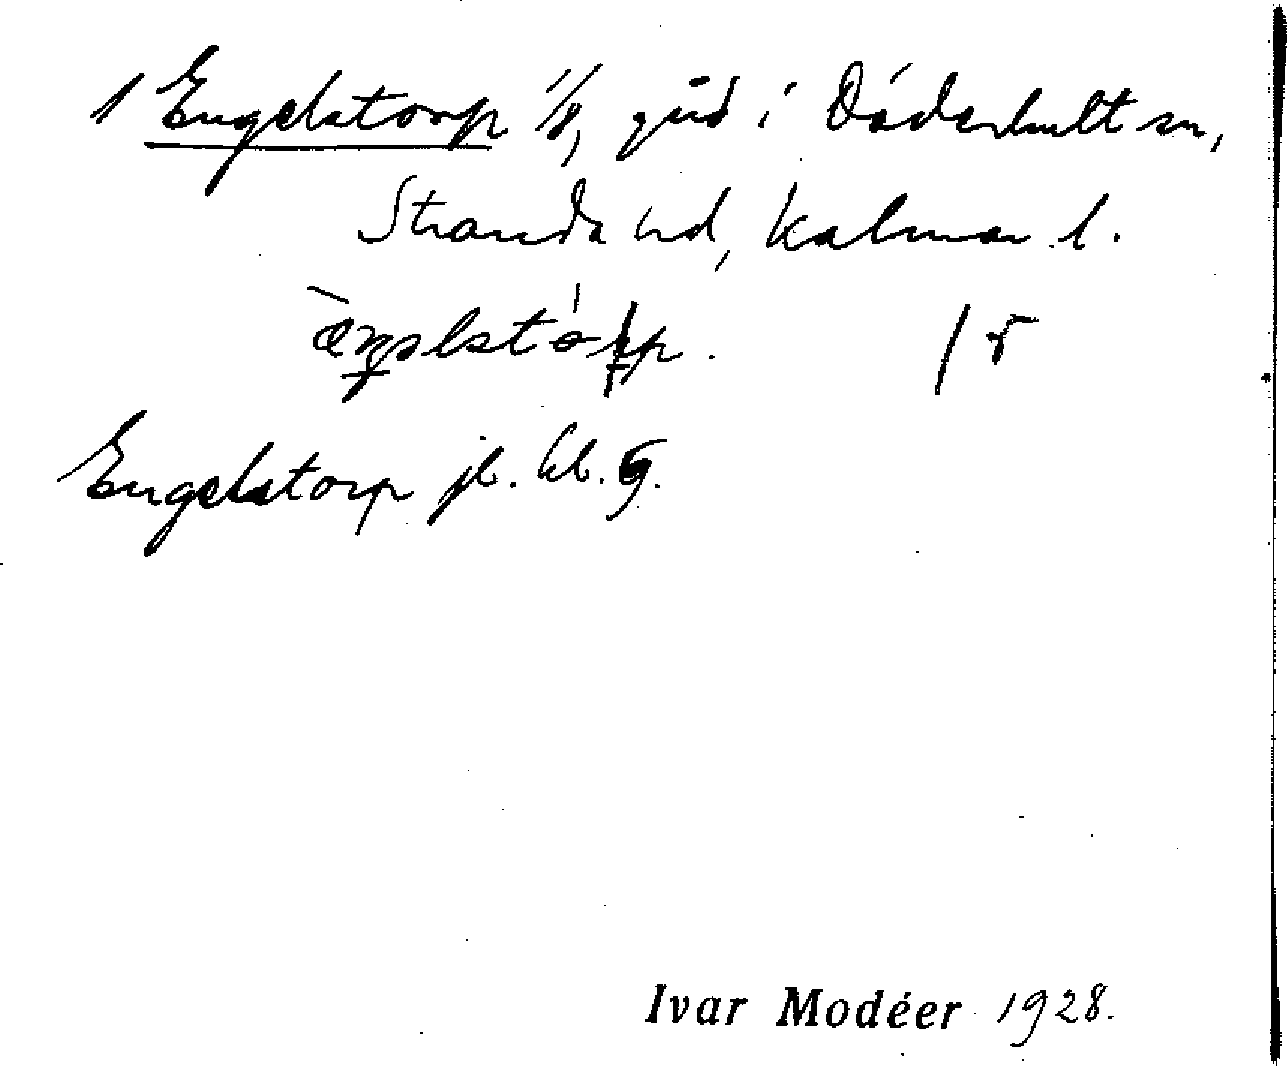 1 Engelstorp 1/8, gård i Döderhult sn,
Stranda hd, Kalmar l.
Engelstorp jb. bl. 9.
Ivar Modéer 1928.